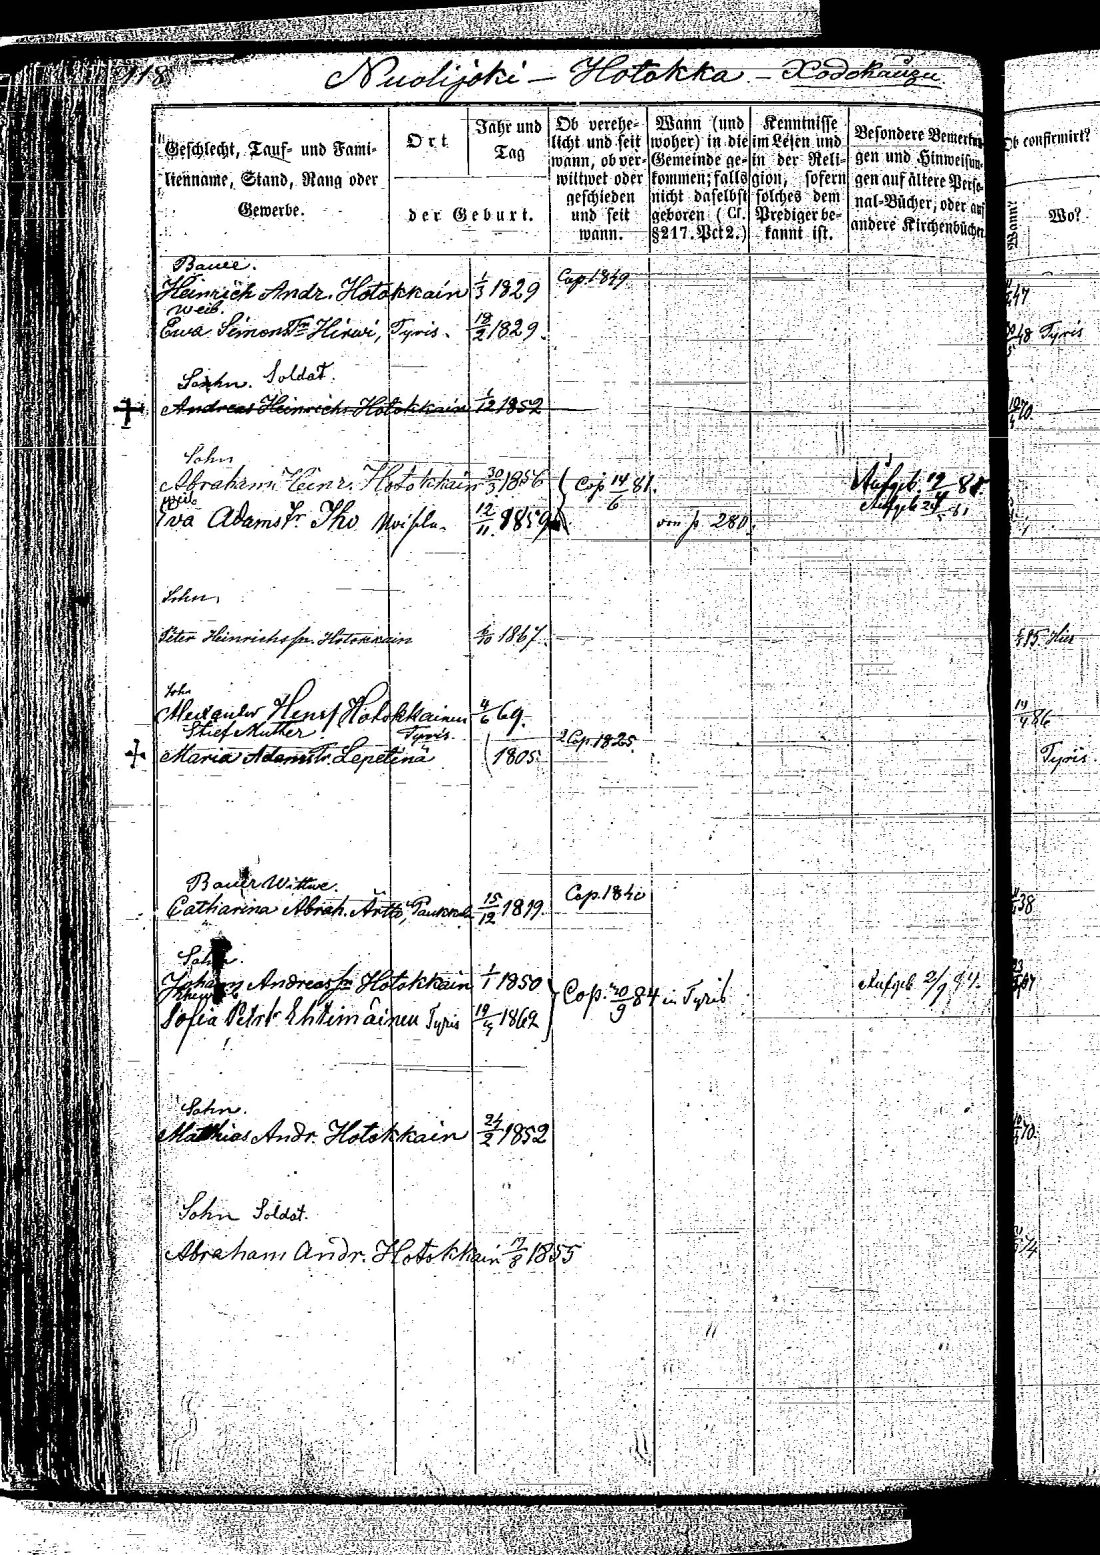 118 Nuolijoki – Hotokka – Ходокайзи
Geschlecht, Tauf- und Fami-
lienname, Stand, Rang oder
Gewerbe.
Ort
Jahr und
Tag
der Geburt.
Ob verehe-
licht und seit
wann, ob ver-
wittwet oder
geschieden
und seit
wann.
Wann (und
woher) in die
Gemeinde ge-
kommen; falls
nicht daselbst
geboren (Cf.
§ 217. Pct 2.)
Kenntnisse
im Lesen und
in der Reli-
gion, sofern
solches dem
Prediger be-
kannt ist.
Besondere Bemerkun-
gen und Hinweisun-
gen auf ältere Perso-
nal-Bücher, oder auf
andere Kirchenbücher
Ob confirmirt?
Wann?
Wo?
Bauer.
Heinrich Andr. Hotokkain 1/3 1829 Cop. 1849 47
Weib.
Ewa Simons Tr Hirwi, Tyris. 18/2 1829. 48 Tyris
Sohn. Soldat.
Andreas Heinrichs Hotokkain 1/12 1852 70.
Sohn
Abraham Heinr. Hotokkain 30/3 1856 Cop 14/6 81. Aufgeb. 19/4 81.
Weib
Eva Adams Tr Iho 12/11 1859 von p. 280. Aufgeb
Sohn,
Peter Heinrichssn. Hotokkain 1867. 85 Hier
Sohn
Alexander Henrs Hotokkainen 4/6 69. 86
Stief Mutter Tyris.
Maria Adams Tr. Lepetinä 1805. 2 Cop. 1825. Tyris.
Bauer Wittwe.
Catharina Abrah. Ärtto, 15/12 1819. Cop. 1840 38
Sohn.
Johann Andreas sn Hotokkain 1/1 1850 Cop. 20/9 84 in Tyris Aufgeb 2/9 84. 67
Sofia Petr Tr Ehtimäinen Tyris 19/4 1862
Sohn.
Matthias Andr. Hotokkain 24/2 1852 70.
Sohn Soldat.
Abraham Andr. Hotokkain 17/8 1855 74